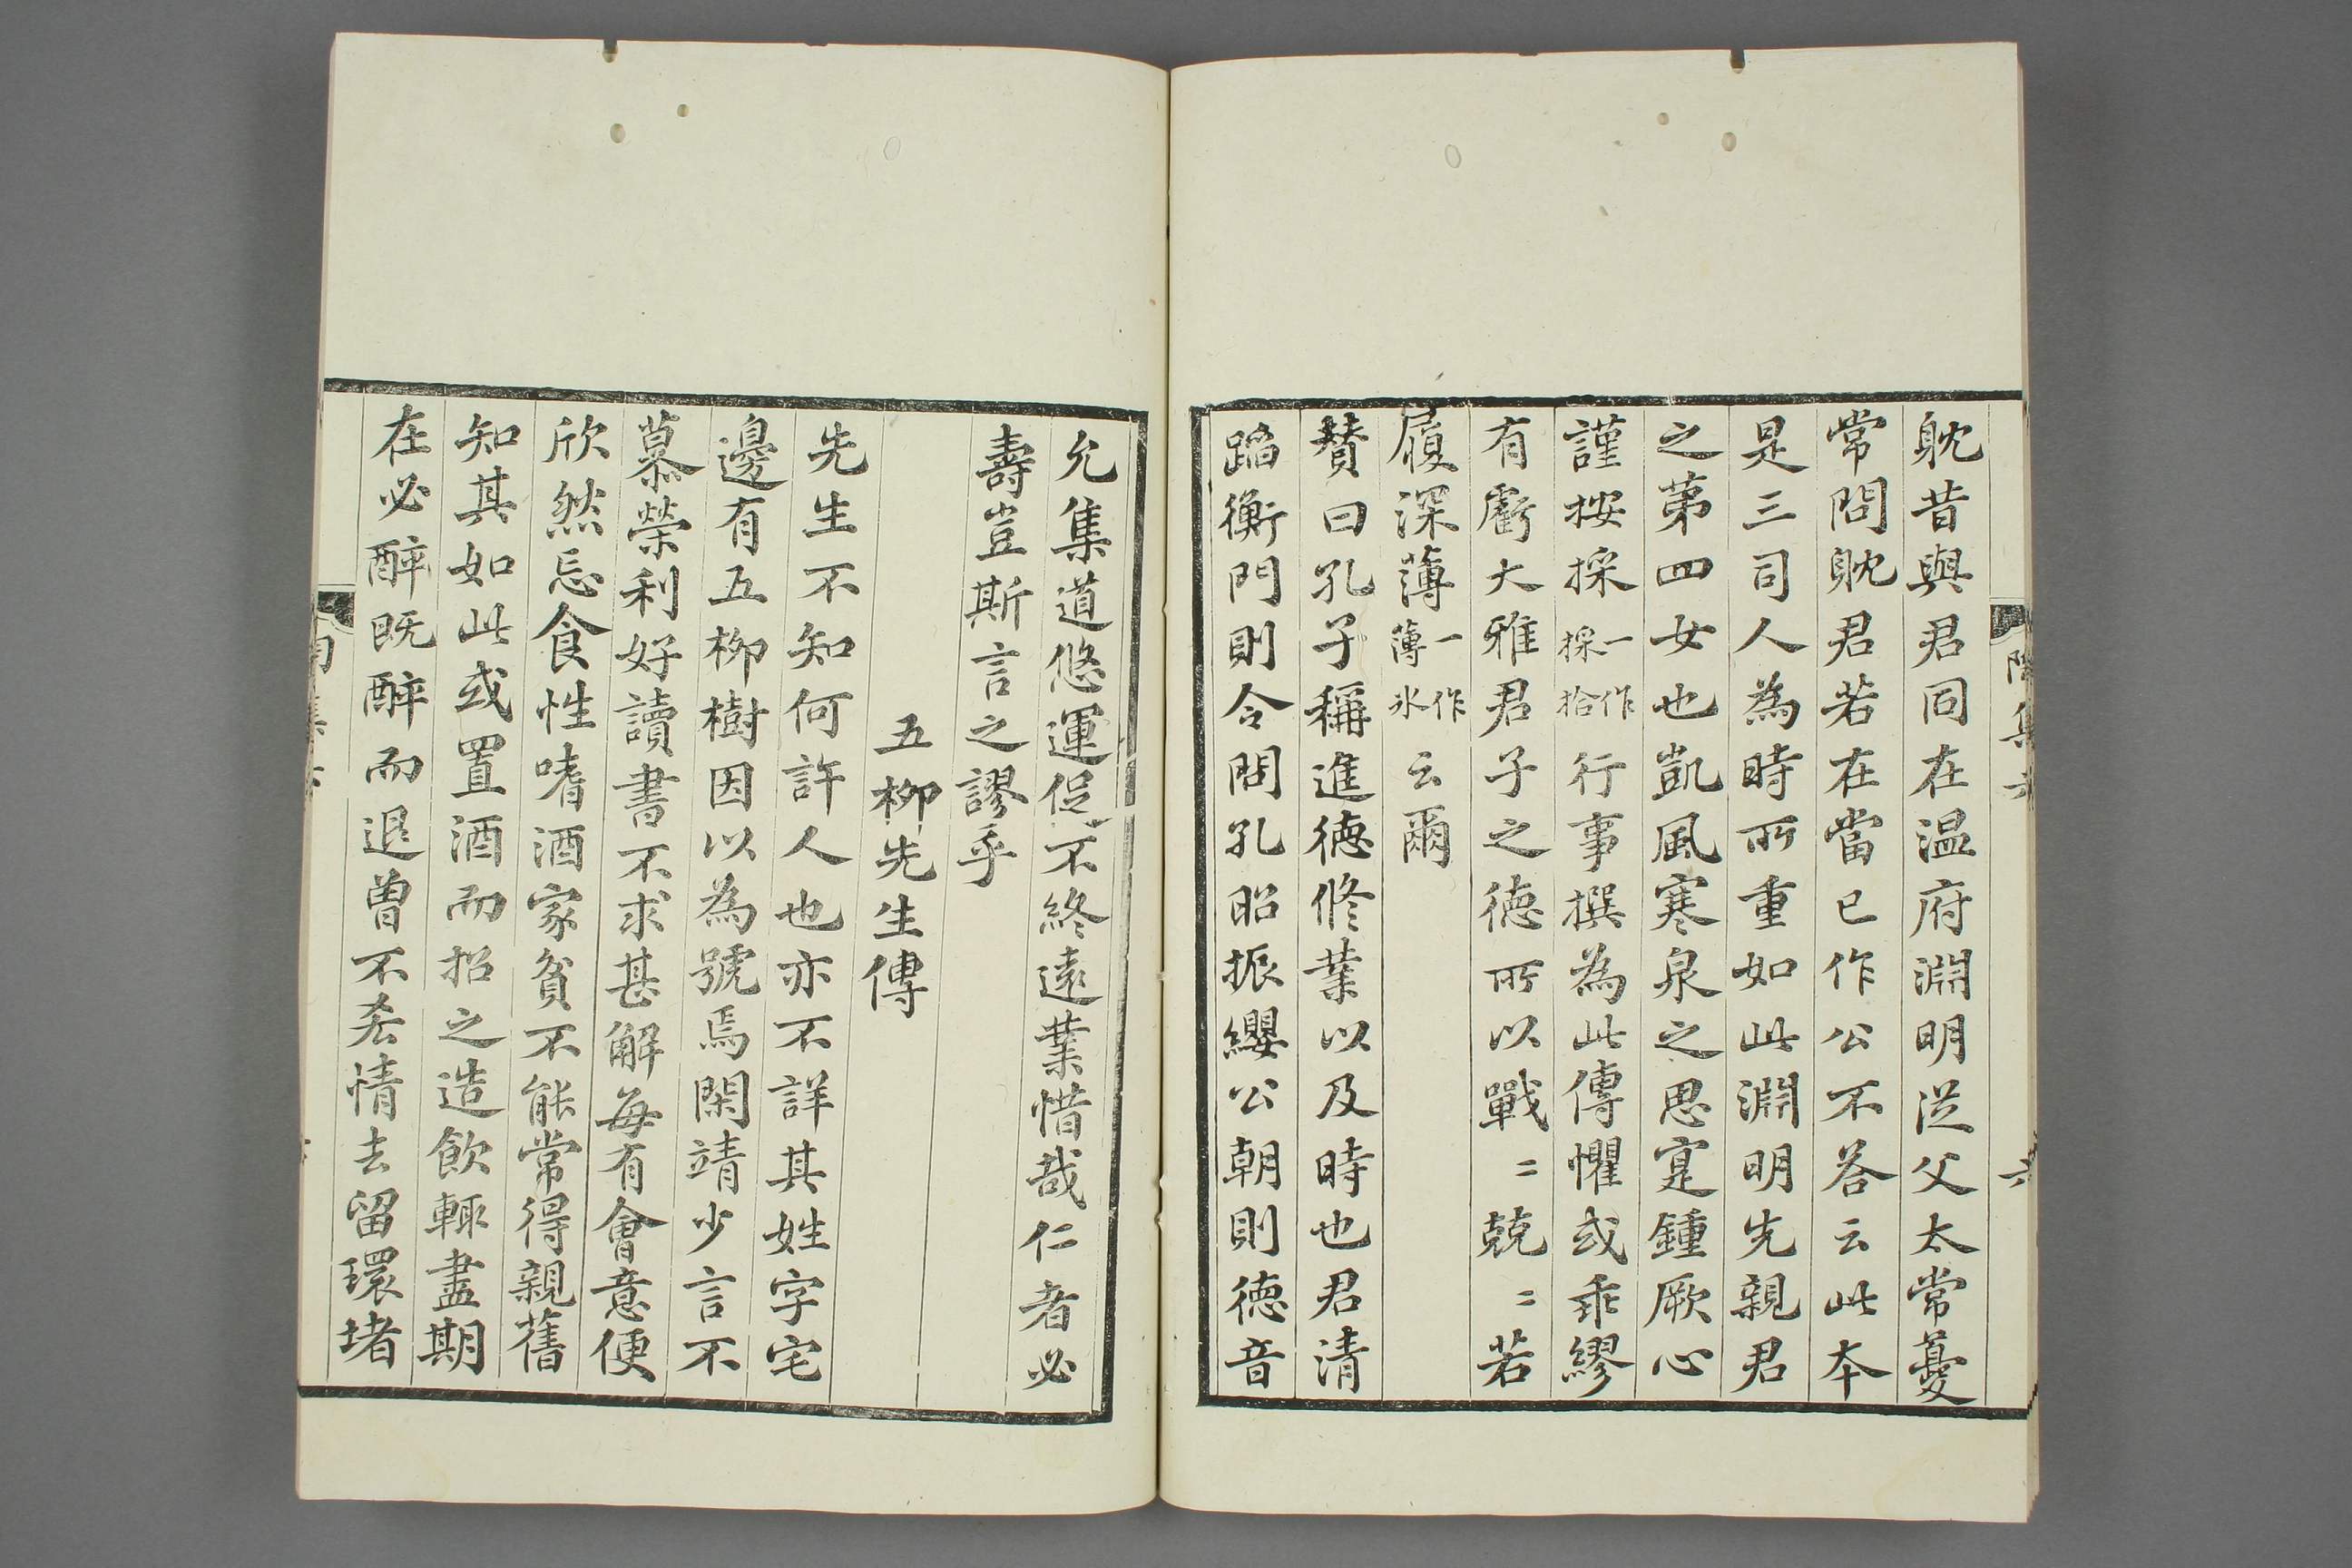 耽昔與君同在温府淵明從父太常夔
常問耽君若在當已作公不答云此本
是三司人為時所重如此淵明先親君
之第四女也凱風寒泉之思寔鍾厥心
謹按採一作採拾行事撰為此傳懼或乖繆
有虧大雅君子之德所以戰〻兢〻若
履深薄一作薄氷云爾
賛曰孔子稱進德修業以及時也君清
蹈衡門則令問孔昭振纓公朝則德音
允集道悠運促不終遠業惜哉仁者必
壽豈斯言之謬乎
五柳先生傳
先生不知何許人也亦不詳其姓字宅
邊有五柳樹因以為號焉閑靖少言不
慕榮利好讀書不求甚解每有會意便
欣然忘食性嗜酒家貧不能常得親舊
知其如此或置酒而招之造飲輒盡期
在必醉既醉而退曾不吝情去留環堵